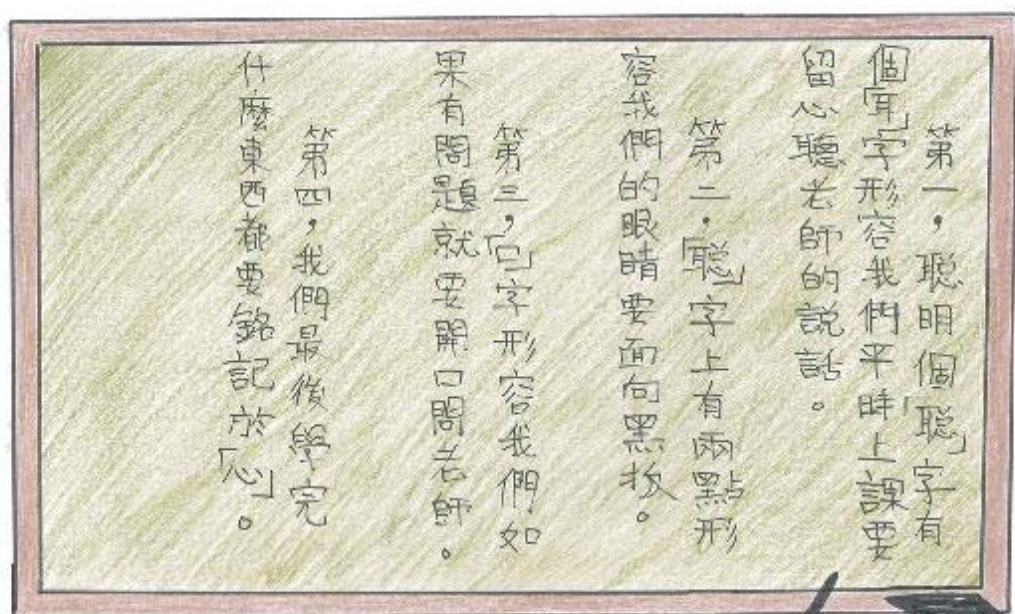 第一，聡明個「聡」字有
個「耳」字形容我們平時上課要
留心聽老師的説話。
第二，「聡」字上有兩點形
容我們的眼睛要面向黑板。
第三，「口」字形容我們如
果有問題就要開口問老師。
第四，我們最後學完
什麼東西都要銘記於「心」。